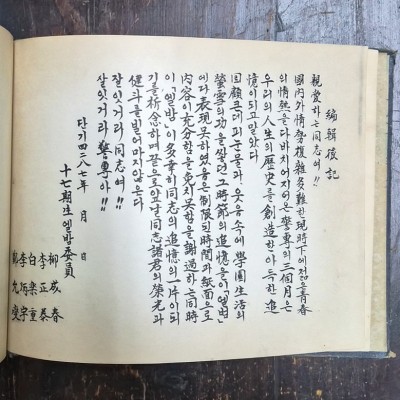 編輯後記
親愛하는 同志여!!
國內外情勢複雜多難한 現時下에 젊은 靑春
의 情熱을 다 바치어지어온 警專의 三個月은
우리의 人生의 歷史를 創造한 아득한 追
憶이 되고 말았다
回顧컨대 피눈물과 웃음 속에 學園生活의
螢雪의 功을 쌓던 그 時節의 追憶을 이 「앨범」
에다 表現못하였음은 制限된 時間과 紙面으로
內容이 充分함을 免치 못함을 謝過하는 同時
이 「앨범」이 多幸히 同志의 追憶의 一片이 되
기를 祈念하며 끝으로 앞날 同志諸君의 榮光과
健斗를 빌어마지 않는다
잘잇거라 同志여!!
잘잇거라 警專아!!
단기 四二八七年 月 日
十七期生 앨범委員
柳 成春
李 正泰
白 樂重
李 炳宇
九